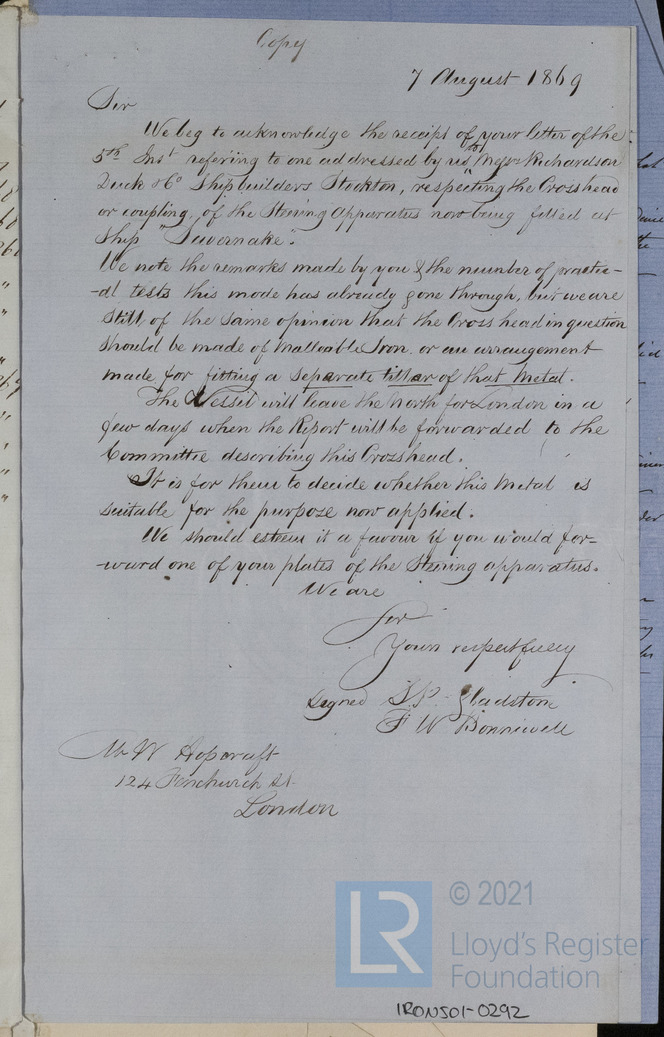 Copy
7 August 1869
Sir
We beg to acknowledge the receipt of your letter of the
5th Inst refering to one addressed by us to Messrs Richardson
Duck & Co Shipbuilders Stockton, respecting the Crosshead
or coupling, of the Steering Apparatus now being fitted at
Ship "Savernake".
We note the remarks made by you & the number of practic-
-al tests this mode has already gone through, but we are
still of the same opinion that the Cross head in question
should be made of Malleable Iron. or an arrangement
made for fitting a separate tillar of that Metal.
The Vessel will leave the North for London in a
few days when the Report will be forwarded to the
Committee describing this Crosshead.
It is for them to decide whether this Metal is
suitable for the purpose now applied.
We should esteem it a favour if you would for-
-ward one of your plates of the Steering apparatus.
We are
Sir
Yours respectfully
Signed J.P. Gladstone
F W Bonniwell
Mr W Hopcraft
124 Fenchurch St.
London
LR
© 2021
Lloyd's Register
Foundation
IRON501-0292